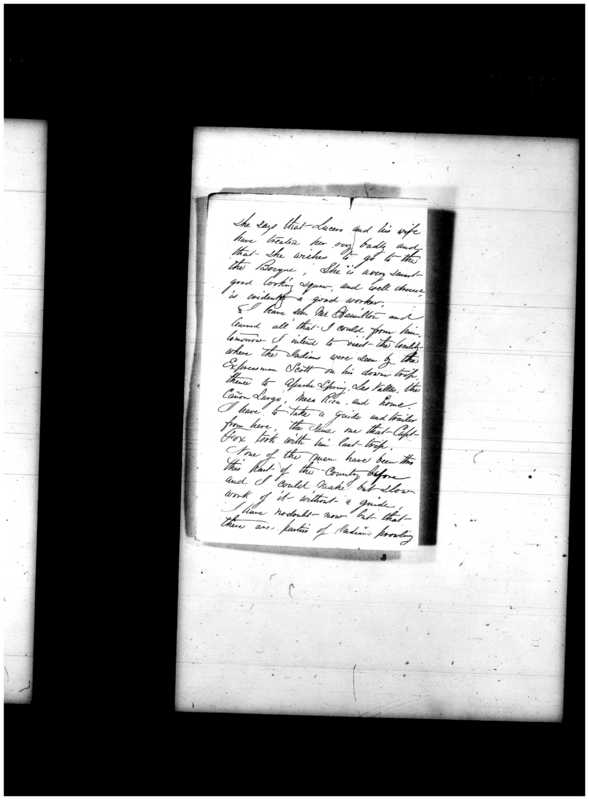 she says that Lucero and his wife
have treated her very badly and
that she wishes to go to the
the Bosque. She is a very smart
good looking squaw, and well
is evidently a good worker.
I have seen Mr Hamilton and
learned all that I could from him.
tomorrow I intend to visit the
where the Indians were seen by the
Expressman Scott on his down trip,
thence to Apache Spring, Las Vallas, the
Cañon Largo, Mesa Rica, and home.
I have to take a guide and trailer
from here, the same one that Capt
Fox took with him last trip.
None of the men have been this
this part of the Country before
and I could make but slow
work of it without a guide.
I have no doubt now but that
there are parties of Indians prowling